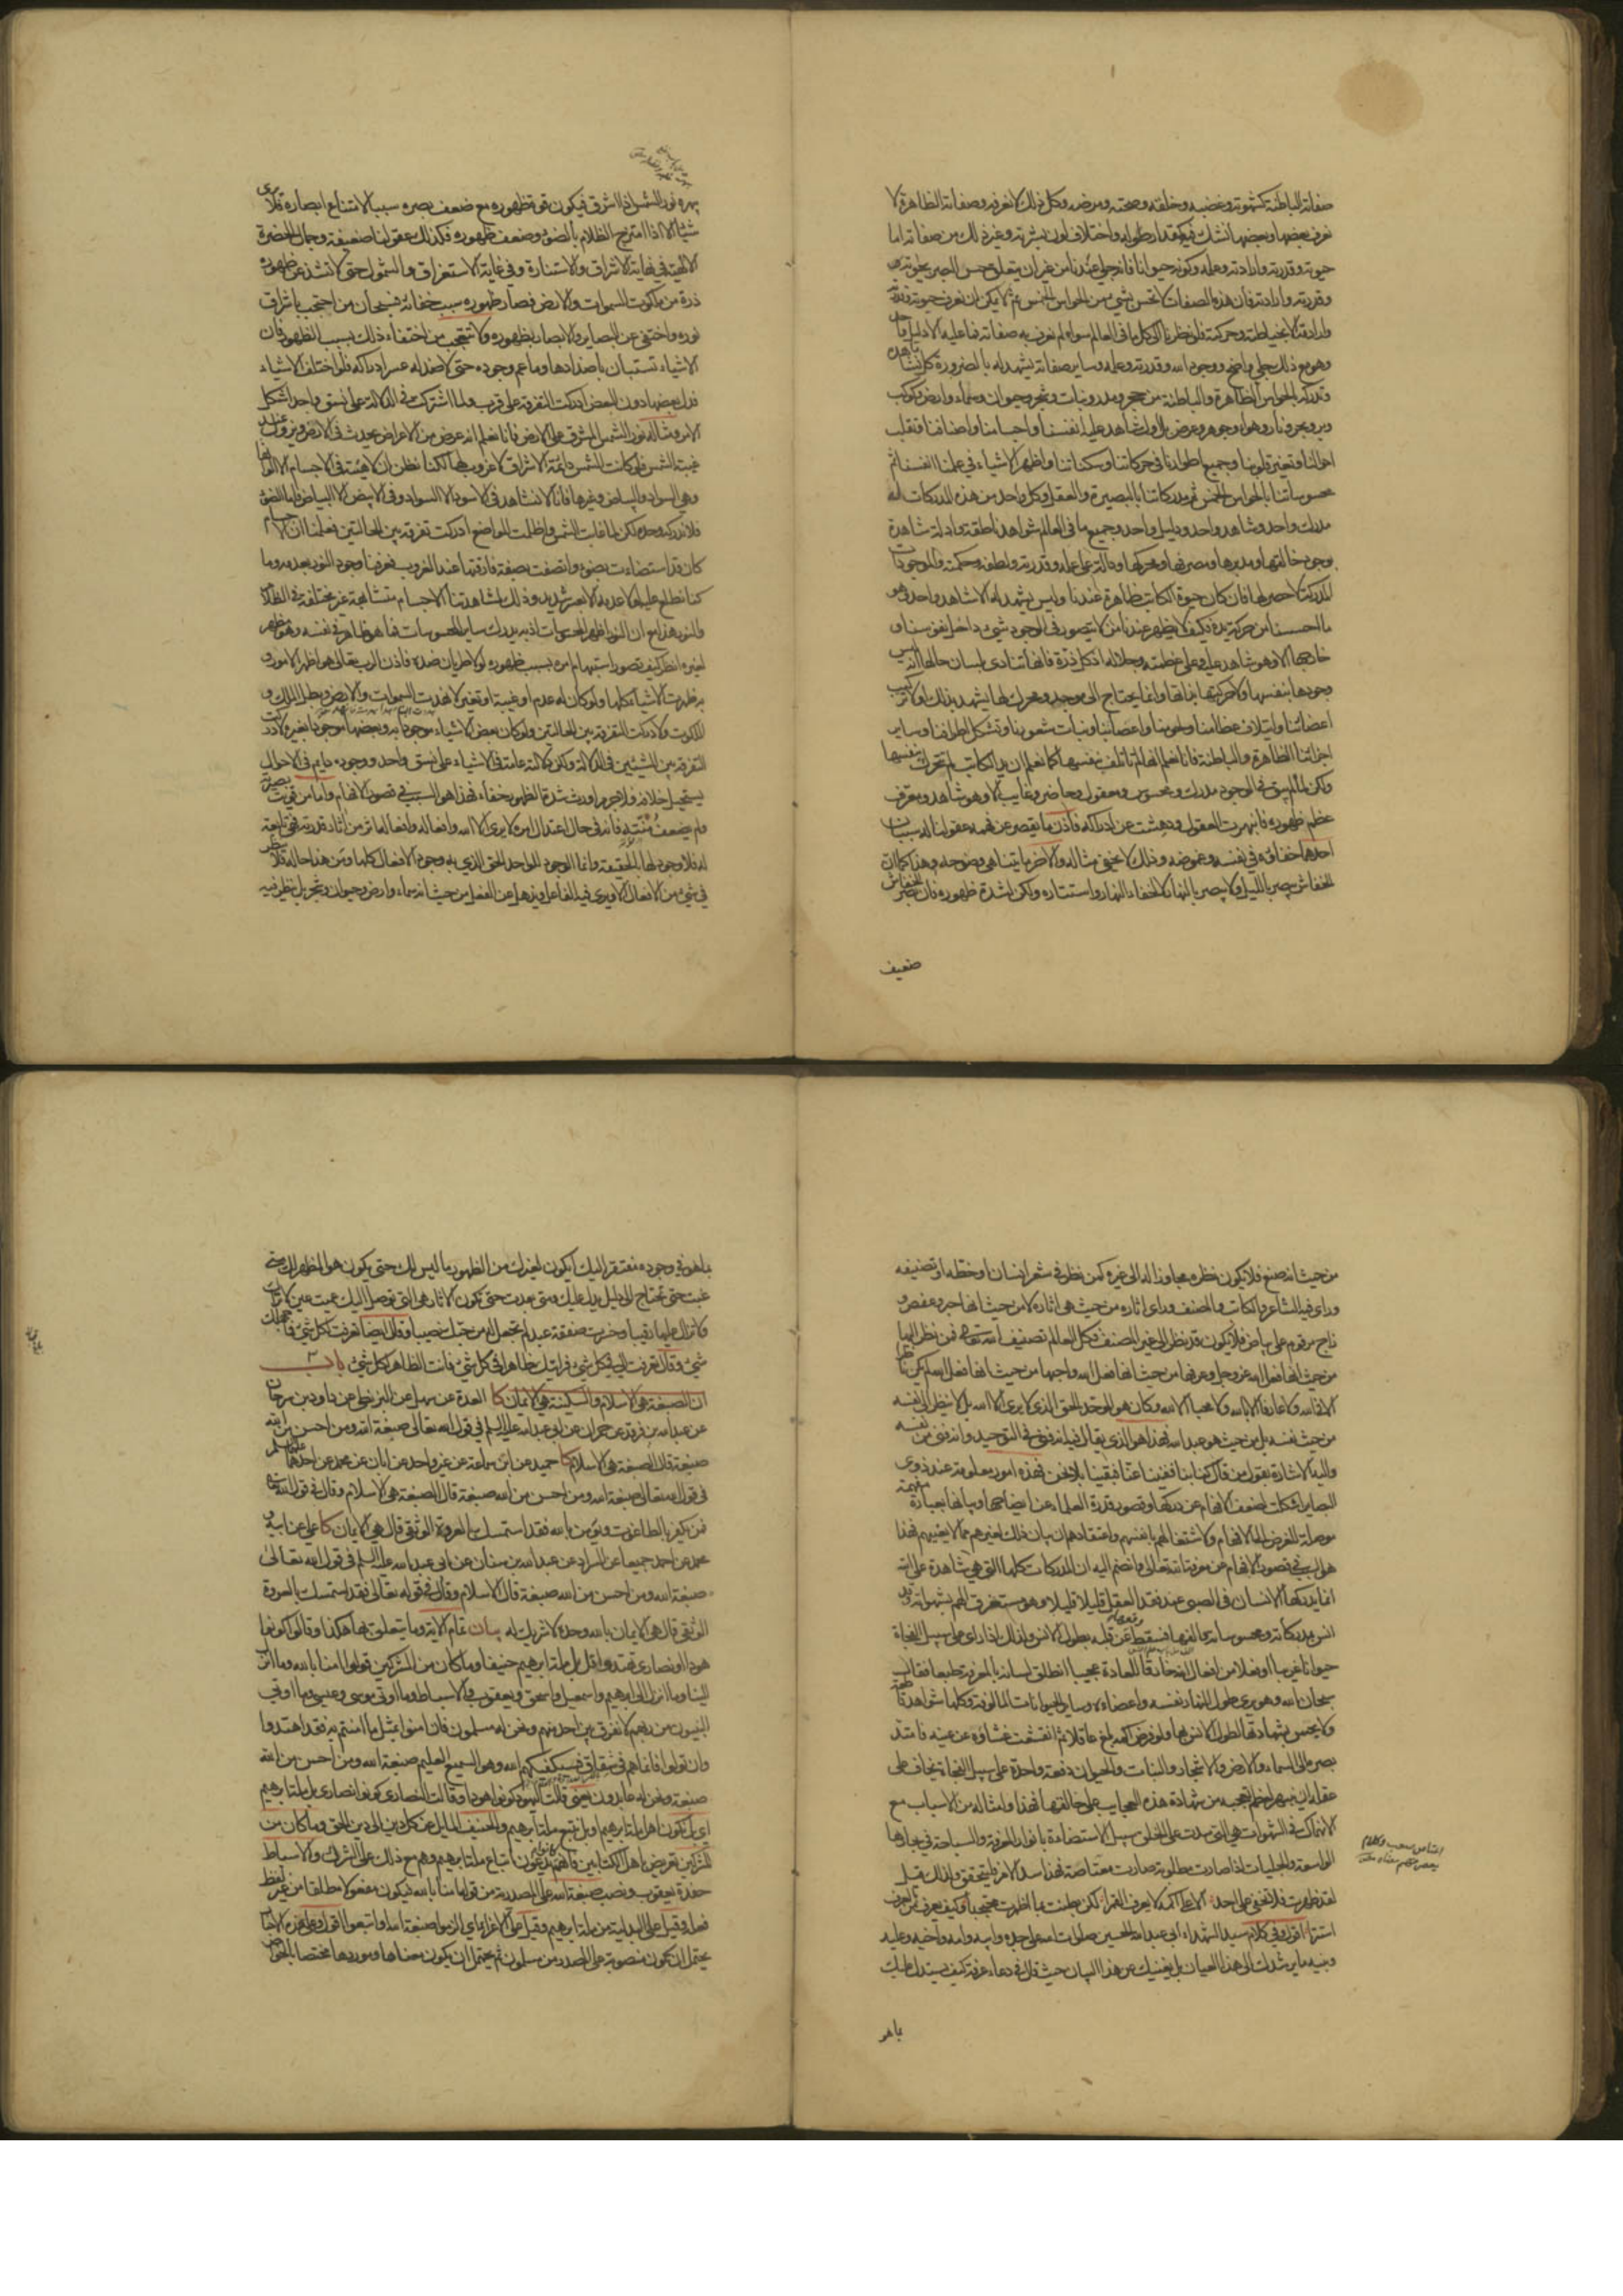 صفاته الباطنة كشهوته وغضبه وخلقه وصحته ومرضه وكل ذلك لا نعرفه وصفاته الظاهرة لا
نعرف بعضها وبعضها نشك فيه كمقدار طوله واختلاف لون بشرته وغير ذلك من صفاته اما
حيوته وقدرته وارادته وعلمه وكونه حيوانا فانه جلي عندنا من غير ان يتعلق حس البصر بحيوته
وقدرته وارادته فان هذه الصفات لا تحس بشيء من الحواس الخمس ثم لا يمكن ان نعرف حيوته وقدرته
وارادته الا بخياطته وحركته فلو نظرنا الى كل ما في العالم سواه لم نعرف به صفاته فما عليه الا دليل واحد
وهو مع ذلك جلي واضح ووجود الله وقدرته وعلمه وساير صفاته يشهد له بالضرورة كل ما نشاهده
وندركه بالحواس الظاهرة والباطنة من حجر ومدر ونبات وشجر وحيوان وسماء وارض وكوكب
وبر وبحر ونار وهواء وجوهر وعرض بل اول شاهد عليه انفسنا واجسامنا واصنافنا وتقلب
احوالنا وتغير قلوبنا وجميع اطوارنا في حركاتنا وسكناتنا واظهر الاشياء في علمنا انفسنا ثم
محسوساتنا بالحواس الخمس ثم مدركاتنا بالبصيرة والعقل وكل واحد من هذه المدركات له
مدرك واحد وشاهد واحد ودليل واحد وجميع ما في العالم شواهد ناطقة وادلة شاهدة
بوجود خالقها ومدبرها ومصرفها ومحركها ودالة على علمه وقدرته ولطفه وحكمته والموجودات
المدركة لا حصر لها فان كان حيوة الكاتب ظاهرة عندنا وليس يشهد له الا شاهد واحد وهو
ما احسسنا من حركة يده فكيف لا يظهر عندنا من لا يتصور في الوجود شيء داخل نفوسنا و
خارجها الا وهو شاهد عليه وعلى عظمته وجلاله اذ كل ذرة فانها تنادي بلسان حالها انه ليس
وجودها بنفسها ولا حركتها بذاتها وانما يحتاج الى موجد ومحرك لها يشهد بذلك اولا تركيب
اعضائنا وايتلاف عظامنا ولحومنا واعصابنا ونبات شعورنا وتشكل اطرافنا وساير
اجزائنا الظاهرة والباطنة فانا نعلم انها لم تاتلف بنفسها كما نعلم ان يد الكاتب لم تتحرك بنفسها
ولكن لما لم يبق في الوجود مدرك ومحسوس ومعقول وحاضر وغايب الا وهو شاهد ومعرف
عظم ظهوره فانبهرت العقول ودهشت عن ادراكه فاذن ما يقصر عن فهمه عقولنا له سببان
احدهما خفاؤه في نفسه وغموضه وذلك لا يخفى مثاله والاخر ما يتناهى وضوحه وهذا كما ان
الخفاش يبصر بالليل ولا يبصر بالنهار لا لخفاء النهار واستتاره ولكن لشدة ظهوره فان بصر الخفاش
ضعيف
يبهره نور الشمس اذا اشرق فيكون قوة ظهوره مع ضعف بصره سببا لامتناع ابصاره فلا يرى
شيئا الا اذا امتزج الظلام بالضوء وضعف ظهوره فكذلك عقولنا ضعيفة وجمال الحضرة
الالهية في نهاية الاشراق والاستنارة وفي غاية الاستغراق والشمول حتى لا يشذ عن ظهوره
ذرة من ملكوت السموات والارض فصار ظهوره سبب خفائه فسبحان من احتجب باشراق
نوره واختفى عن البصاير والابصار بظهوره ولا تتعجب من اختفاء ذلك بسبب الظهور فان
الاشياء تستبان باضدادها وما عم وجوده حتى لا ضد له عسر ادراكه فلو اختلف الاشياء
فدل بعضها دون البعض ادركت التفرقة على قرب ولما اشتركت في الدلالة على نسق واحد اشكل
الامر ومثاله نور الشمس المشرق على الارض فانا نعلم انه عرض من الاعراض يحدث في الارض ويزول عند
غيبة الشمس فلو كانت الشمس دائمة الاشراق لا غروب لها لكنا نظن ان لا هيئة في الاجسام الا الوانها
وهي السواد والبياض وغيرها فانا لا نشاهد في الاسود الا السواد وفي الابيض الا البياض فاما الضوء
فلا ندركه وحده لكن لما غابت الشمس واظلمت المواضع ادركت تفرقة بين الحالتين فعلمنا ان الاجسام
كان قد استضاءت بضوء واتصفت بصفة فارقتها عند الغروب فعرفنا وجود النور بعدمه وما
كنا نطلع عليه لولا عدمه الا بعسر شديد وذلك لمشاهدتنا الاجسام متشابهة غير مختلفة في الظلام
والنور هذا مع ان النور اظهر المحسوسات اذ به يدرك ساير المحسوسات فما هو ظاهر في نفسه وهو مظهر
لغيره انظر كيف تصور استبهام امره بسبب ظهوره لولا طريان ضده فاذن الرب تعالى هو اظهر الامور و
به ظهرت الاشياء كلها ولو كان له عدم او غيبة او تغير لانهدت السموات والارض وبطل الملك و
الملكوت ولادركت التفرقة بين الحالتين ولو كان بعض الاشياء موجودا به وبعضها موجودا بغيره لادركت
التفرقة بين الشيئين في الدلالة ولكن دلالته عامة في الاشياء على نسق واحد ووجوده دايم في الاحوال
يستحيل خلافه فلا جرم اورث شدة الظهور خفاء فهذا هو السبب في قصور الافهام واما من قويت بصيرته
ولم يضعف منته فانه في حال اعتدال امره لا يرى الا الله وافعاله وافعاله اثر من آثار قدرته فهي تابعة
له فلا وجود لها بالحقيقة وانما الوجود للواحد الحق الذي به وجود الافعال كلها ومن هذا حاله فلا ينظر
في شيء من الافعال الا ويرى فيه الفاعل ويذهل عن الفعل من حيث انه سماء وارض وحيوان وشجر بل ينظر فيه
من حيث انه صنع فلا يكون نظره مجاوزا له الى غيره كمن نظر في شعر انسان او خطه او تصنيفه
وراى فيه الشاعر والكاتب والمصنف وراى آثاره من حيث هي آثاره لا من حيث انها حبر وعفص و
زاج مرقوم على بياض فلا يكون قد نظر الى غير المصنف فكل العالم تصنيف الله تعالى فمن نظر اليها
من حيث انها فعل الله عز وجل وعرفها من حيث انها فعل الله واحبها من حيث انها فعل الله لم يكن ناظرا
الا في الله ولا عارفا الا بالله ولا محبا الا لله وكان هو الموحد الحق الذي لا يرى الا الله بل لا ينظر الى نفسه
من حيث نفسه بل من حيث هو عبد الله فهذا هو الذي يقال فيه انه فنى في التوحيد وانه فنى من نفسه
واليه الاشارة بقول من قال كنا بنا ففنينا عنا فبقينا بلا نحن فهذه امور معلومة عند ذوي
البصاير اشكلت لضعف الافهام عن دركها وقصور قدرة العلماء عن ايضاحها وبيانها بعبارة مفهمة
موصلة للغرض الى الافهام ولاشتغالهم بانفسهم واعتقادهم ان بيان ذلك لغيرهم مما لا يعنيهم فهذا
هو السبب في قصور الافهام عن معرفة الله تعالى وانضم اليه ان المدركات كلها التي هي شاهدة على الله
انما يدركها الانسان في الصبي عند فقد العقل قليلا قليلا وهو مستغرق الهم بشهواته وقد
انس بمدركاته ومحسوساته والفها فسقط وقعها عن قلبه بطول الانس ولذلك اذا راى على سبيل الفجاة
حيوانا غريبا او فعلا من افعال الله خارقا للعادة عجيبا انطلق لسانه بالمعرفة طبعا فقال
سبحان الله وهو يرى طول النهار نفسه واعضاءه وساير الحيوانات المالوفة وكلها شواهد قاطعة
ولا يحس بشهادتها لطول الانس بها ولو فرض اكمه بلغ عاقلا ثم انقشعت غشاوة عن عينه فامتد
بصره الى السماء والارض والاشجار والنبات والحيوان دفعة واحدة على سبيل الفجاة يخاف على
عقله ان ينبهر لعظم تعجبه من شهادة هذه العجايب على خالقها فهذا وامثاله من الاسباب مع
الانهماك في الشهوات هي التي سدت على الخلق سبيل الاستضاءة بانوار المعرفة والسباحة في بحارها
الواسعة والجليات اذا صارت مطلوبة صارت معتاصة فهذا سد الامر فليتحقق ولذلك قيل
لقد ظهرت فلا تخفى على احد الا على اكمه لا يعرف القمرا لكن بطنت بما اظهرت محتجبا وكيف يعرف من بالعرف
استترا اقول وفي كلام سيد الشهداء ابي عبد الله الحسين صلوات الله على جده وابيه وامه واخيه وعليه
وبنيه ما يرشدك الى هذا العيان بل يغنيك عن هذا البيان حيث قال في دعاء عرفة كيف يستدل عليك
بما هو
بما هو في وجوده مفتقر اليك ايكون لغيرك من الظهور ما ليس لك حتى يكون هو المظهر لك متى
غبت حتى تحتاج الى دليل يدل عليك ومتى بعدت حتى تكون الاثار هي التي توصل اليك عميت عين لا تراك
ولا تزال عليها رقيبا وخسرت صفقة عبد لم تجعل له من حبك نصيبا وقال ايضا تعرفت لكل شيء فما جهلك
شيء وقال تعرفت الي في كل شيء فرايتك ظاهرا في كل شيء فانت الظاهر لكل شيء باب
ان الصبغة هي الاسلام والسكينة هي الايمان كا العدة عن سهل عن البزنطي عن داود بن سرحان
عن عبد الله بن فرقد عن حمران عن ابي عبد الله عليه السلم في قول الله تعالى صبغة الله ومن احسن من الله
صبغة قال الصبغة هي الاسلام كا حميد عن ابن سماعة عن غير واحد عن ابان عن محمد عن احدهما عليهما السلم
في قول الله تعالى صبغة الله ومن احسن من الله صبغة قال الصبغة هي الاسلام وقال في قول الله تعالى
فمن يكفر بالطاغوت ويؤمن بالله فقد استمسك بالعروة الوثقى قال هي الايمان كا علي عن ابيه و
محمد عن احمد جميعا عن السراد عن عبد الله بن سنان عن ابي عبد الله عليه السلم في قول الله تعالى
صبغة الله ومن احسن من الله صبغة قال الاسلام وقال في قوله تعالى فقد استمسك بالعروة
الوثقى قال هي الايمان بالله وحده لا شريك له بيان تمام الاية وما يتعلق بها هكذا وقالوا كونوا
هودا او نصارى تهتدوا قل بل ملة ابرهيم حنيفا وما كان من المشركين قولوا امنا بالله وما انزل
الينا وما انزل الى ابرهيم واسمعيل واسحق ويعقوب والاسباط وما اوتي موسى وعيسى وما اوتي
النبيون من ربهم لا نفرق بين احد منهم ونحن له مسلمون فان امنوا بمثل ما امنتم به فقد اهتدوا
وان تولوا فانما هم في شقاق فسيكفيكهم الله وهو السميع العليم صبغة الله ومن احسن من الله
صبغة ونحن له عابدون يعني قالت اليهود كونوا هودا وقالت النصارى كونوا نصارى بل ملة ابرهيم
اي بل نكون اهل ملة ابرهيم او بل نتبع ملة ابرهيم والحنيف المايل عن كل دين الى دين الحق وما كان من
المشركين تعريض باهل الكتابين فانهم كانوا يدعون اتباع ملة ابرهيم وهم مع ذلك على الشرك والاسباط
حفدة يعقوب ونصب صبغة الله على المصدرية من قولنا امنا بالله فيكون مفعولا مطلقا من غير لفظ
فعله وقيل على البدلية من ملة ابرهيم وقيل على الاغراء اي الزموا صبغة الله واتبعوا
يحتمل ان يكون منصوبة على المصدر من مسلمون ثم يحتمل ان يكون معناها وموردها مختصا بالخواص